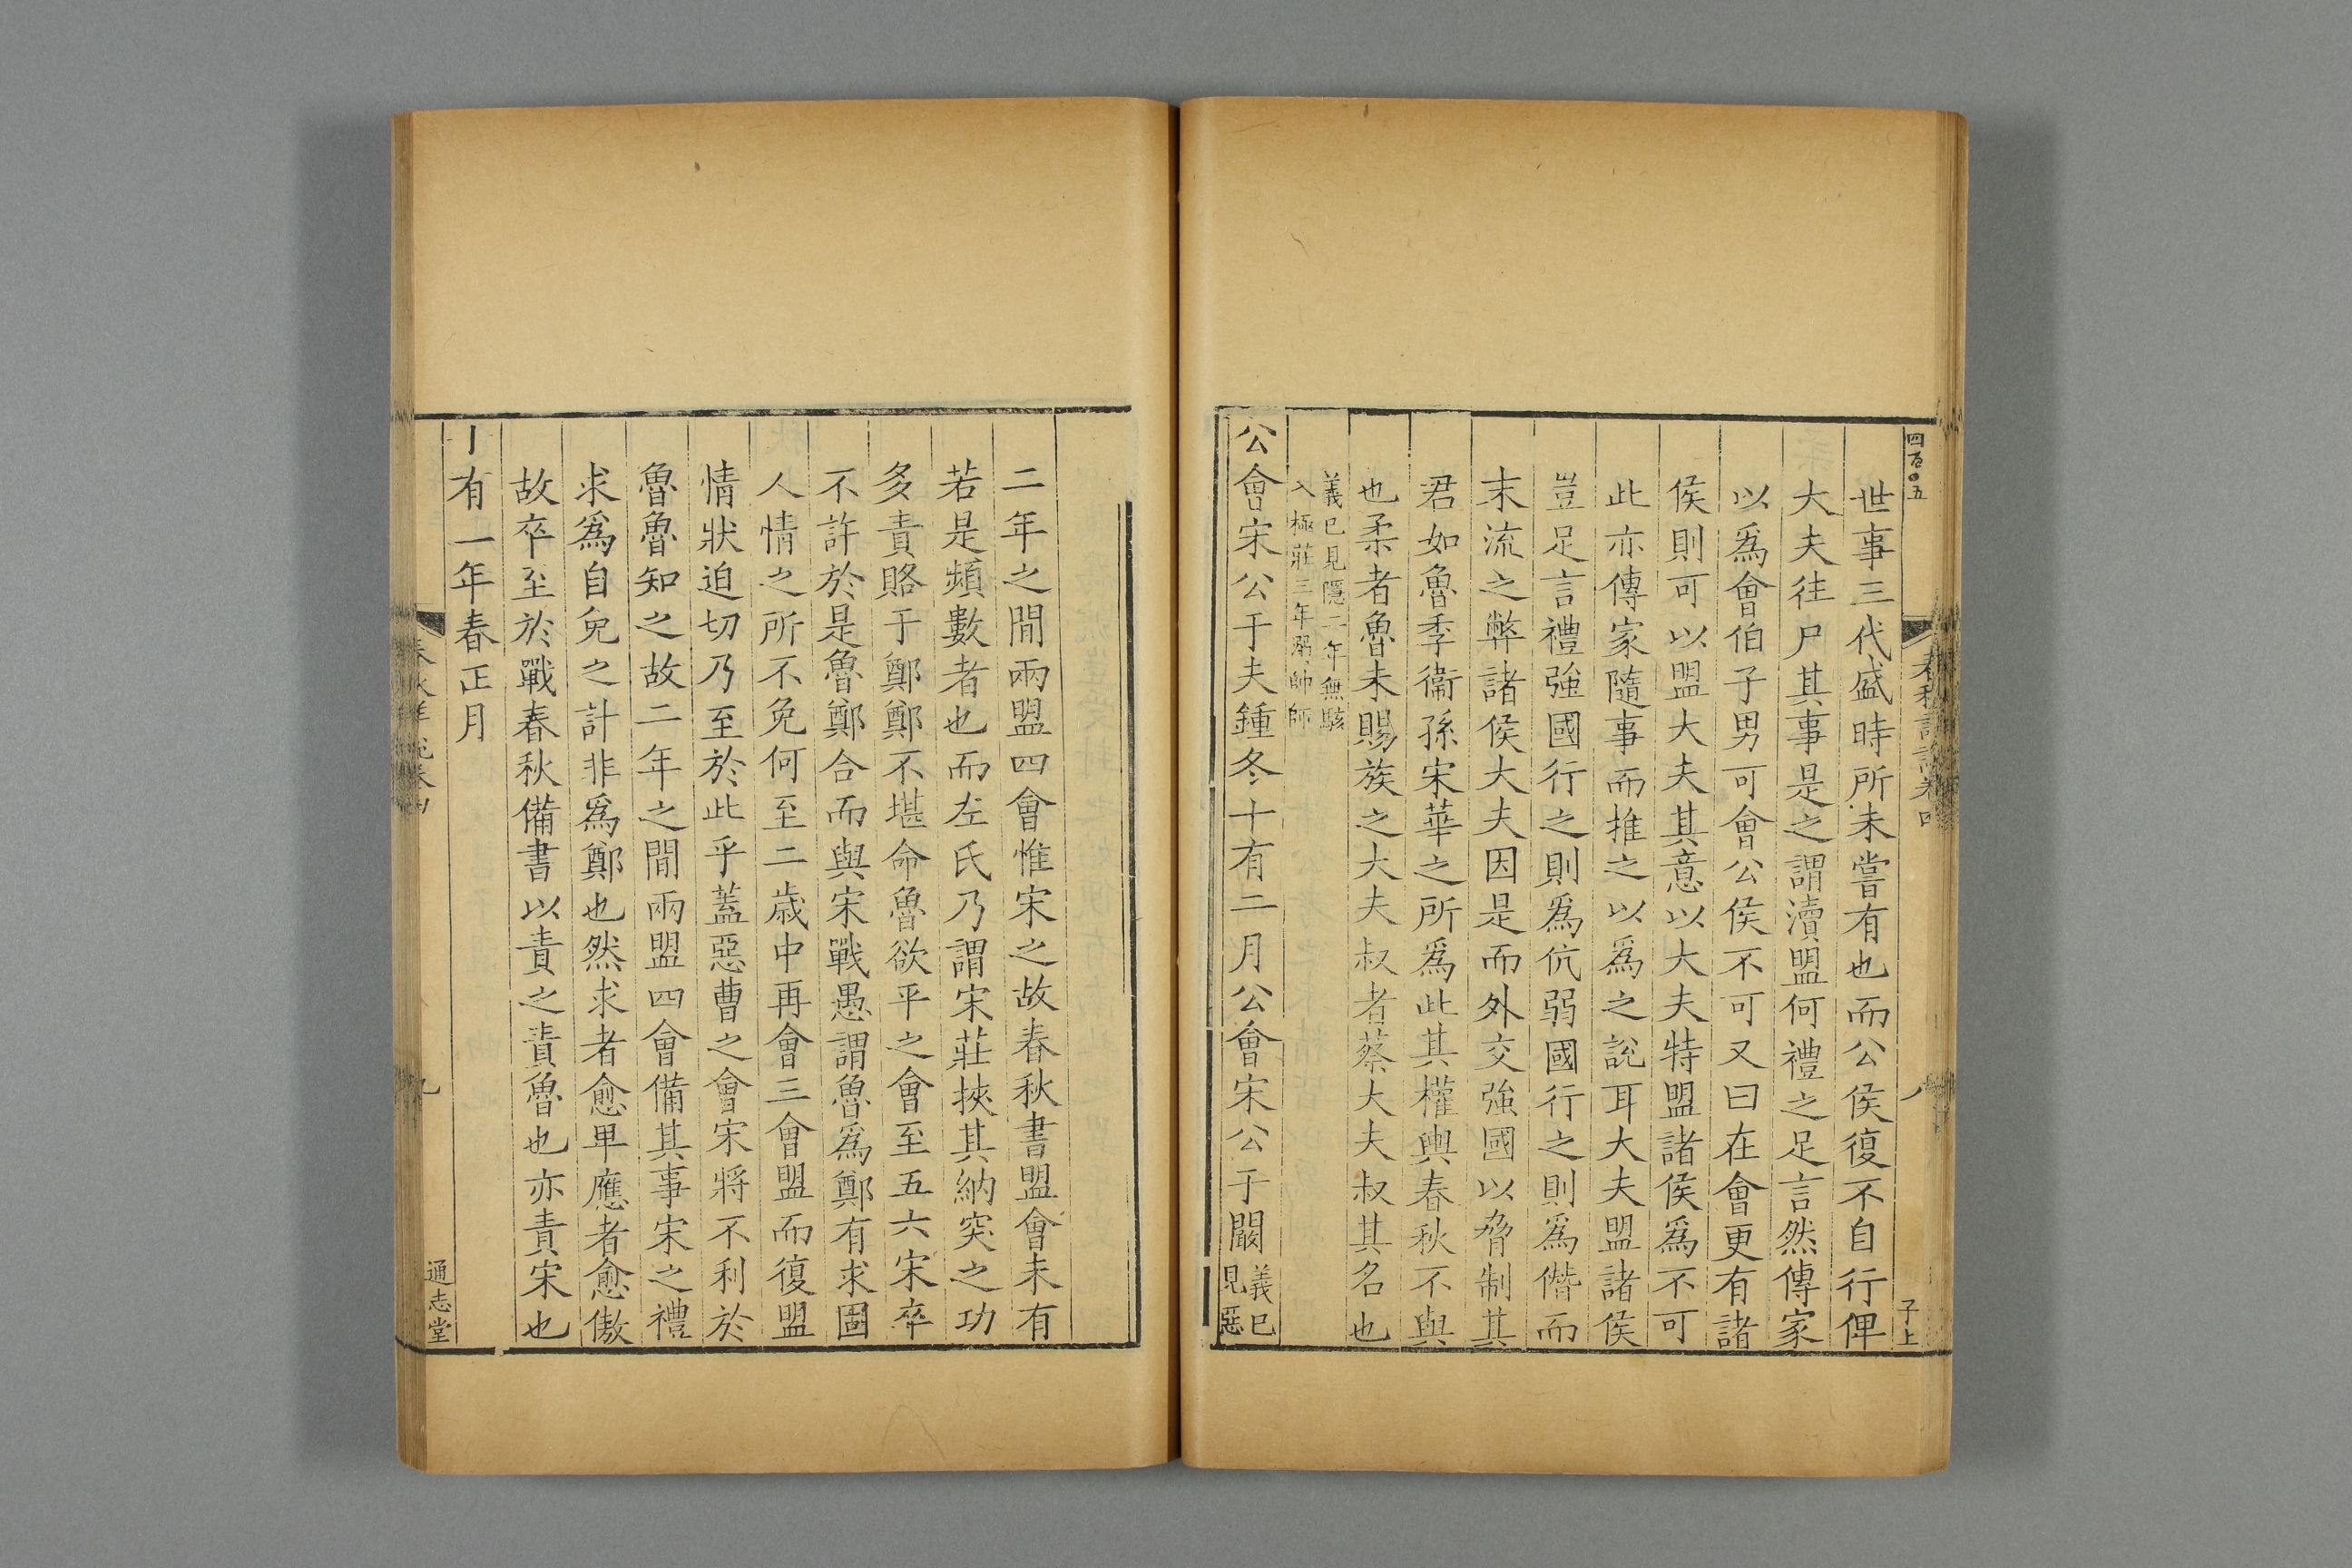 四百〇五
子上
世事三代盛時所未嘗有也而公侯復不自行俾
大夫往尸其事是之謂瀆盟何禮之足言然傳家
以爲會伯子男可會公侯不可又曰在會更有諸
侯則可以盟大夫其意以大夫特盟諸侯爲不可
此亦傳家隨事而推之以爲之說耳大夫盟諸侯
豈足言禮強國行之則爲伉弱國行之則爲僭而
末流之弊諸侯大夫因是而外交強國以脅制其
君如魯季衞孫宋華之所爲此其權輿春秋不與
也柔者魯未賜族之大夫叔者蔡大夫叔其名也
義已見隱二年無駭
入極莊三年溺帥師
公會宋公于夫鍾冬十有二月公會宋公于闞
義已
見惡
二年之閒兩盟四會惟宋之故春秋書盟會未有
若是頻數者也而左氏乃謂宋莊挾其納突之功
多責賂于鄭鄭不堪命魯欲平之會至五六宋卒
不許於是魯鄭合而與宋戰愚謂魯爲鄭有求固
人情之所不免何至二歲中再會三會盟而復盟
情狀迫切乃至於此乎蓋惡曹之會宋將不利於
魯魯知之故二年之閒兩盟四會備其事宋之禮
求爲自免之計非爲鄭也然求者愈卑應者愈傲
故卒至於戰春秋備書以責之責魯也亦責宋也
有一年春正月
通志堂